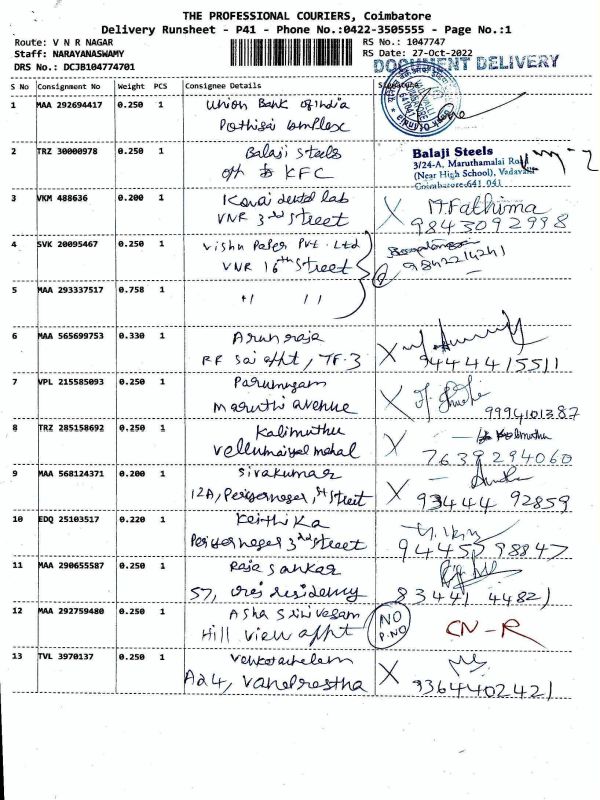 THE PROFESSIONAL COURIERS, Coimbatore
Delivery Runsheet - P41 - Phone No.:0422-3505555 - Page No.:1
Route: V N R NAGAR
Staff: NARAYANASWAMY
DRS No.: DCJB104774701
RS No.: 1047747
RS Date: 27-Oct-2022
DOCUMENT DELIVERY
S No Consignment No Weight PCS Consignee Details Signature
1 MAA 292694417 0.250 1 Union Bank of India
Pothigai Complex
2 TRZ 30000978 0.250 1 Balaji steels
opp to KFC
Balaji Steels
3/24-A, Maruthamalai Road
(Near High School), Vadavalli
Coimbatore-641 041
3 VKM 488636 0.200 1 Kovai dental lab X M.Fathima
VNR 3rd street 9843092998
4 SVK 20095467 0.250 1 Vishnu Paper Pvt. Ltd
VNR 16th street 9842214241
5 MAA 293337517 0.758 1 " "
6 MAA 565699753 0.330 1 Arun raja X
RR Sai appt, TF-3 9444415511
7 VPL 215585093 0.250 1 X
Maruthi avenue 9994101387
8 TRZ 285158692 0.250 1 Kalimuthu X Kalimuthu
Vellumaiyal mahal 7639294060
9 MAA 568124371 0.200 1 Sivakumar X
12A, Periyarnagar, 1st street 93444 92859
10 EDQ 25103517 0.220 1 Keithika
Periyarnagar 3rd street 9445598847
11 MAA 290655587 0.250 1 Raja Sankar
57, residency 83441 44821
12 MAA 292759480 0.250 1 Asha Srinivasan NO P.NO CN-R
Hill view appt
13 TVL 3970137 0.250 1 Venkatachalam X
A24, Vanaprastha 9364402421